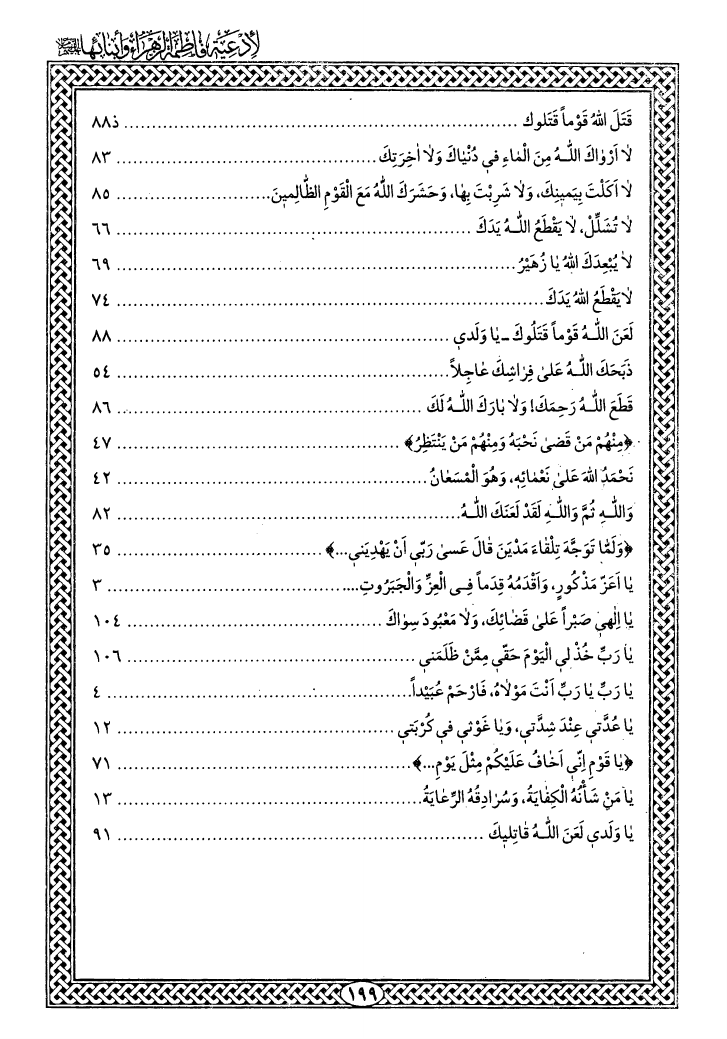 لأدعية فاطمة الزهراء وأبنائها
قَتَلَ اللهُ قَوْماً قَتَلوك ........ ذ٨٨
لاٰ اَرْواكَ اللّٰهُ مِنَ الْمٰاءِ في دُنْيٰاكَ وَلاٰ اٰخِرَتِكَ ........ ٨٣
لاٰ اَكَلْتَ بِيَمينِكَ، وَلاٰ شَرِبْتَ بِهٰا، وَحَشَرَكَ اللهُ مَعَ الْقَوْمِ الظّٰالِمينَ ........ ٨٥
لاٰ تُشَلِّلْ، لاٰ يَقْطَعُ اللّٰهُ يَدَكَ ........ ٦٦
لاٰ يُبْعِدَكَ اللهُ يٰا زُهَيْرُ ........ ٦٩
لاٰ يَقْطَعُ اللهُ يَدَكَ ........ ٧٤
لَعَنَ اللّٰهُ قَوْماً قَتَلُوكَ ـ يٰا وَلَدي ........ ٨٨
ذَبَحَكَ اللّٰهُ عَلىٰ فِرٰاشِكَ عٰاجِلاً ........ ٥٤
قَطَعَ اللّٰهُ رَحِمَكَ! وَلاٰ بٰارَكَ اللّٰهُ لَكَ ........ ٨٦
﴿مِنْهُمْ مَنْ قَضىٰ نَحْبَهُ وَمِنْهُمْ مَنْ يَنْتَظِرُ﴾ ........ ٤٧
نَحْمَدُ اللهَ عَلىٰ نَعْمٰائِهِ، وَهُوَ الْمُسَعٰانُ ........ ٤٢
وَاللّٰهِ ثُمَّ وَاللّٰهِ لَقَدْ لَعَنَكَ اللّٰهُ ........ ٨٢
﴿وَلَمّٰا تَوَجَّهَ تِلْقٰاءَ مَدْيَنَ قٰالَ عَسىٰ رَبّي اَنْ يَهْدِيَني...﴾ ........ ٣٥
يٰا اَعَزَّ مَذْكُورٍ، وَاَقْدَمُهُ قِدَماً فِي الْعِزِّ وَالْجَبَرُوتِ ........ ٣
يٰا اِلٰهي صَبْراً عَلىٰ قَضٰائِكَ، وَلاٰ مَعْبُودَ سِوٰاكَ ........ ١٠٤
يٰا رَبِّ خُذْ لي الْيَوْمَ حَقّي مِمَّنْ ظَلَمَني ........ ١٠٦
يٰا رَبِّ يٰا رَبِّ اَنْتَ مَوْلاٰهُ، فَارْحَمْ عُبَيْداً ........ ٤
يٰا عُدَّتي عِنْدَ شِدَّتي، وَيٰا غَوْثي في كُرْبَتي ........ ١٢
﴿يٰا قَوْمِ اِنّي اَخٰافُ عَلَيْكُمْ مِثْلَ يَوْمِ...﴾ ........ ٧١
يٰا مَنْ شَأْنُهُ الْكِفٰايَةُ، وَسُرٰادِقُهُ الرِّعٰايَةُ ........ ١٣
يٰا وَلَدي لَعَنَ اللّٰهُ قٰاتِليكَ ........ ٩١
١٩٩